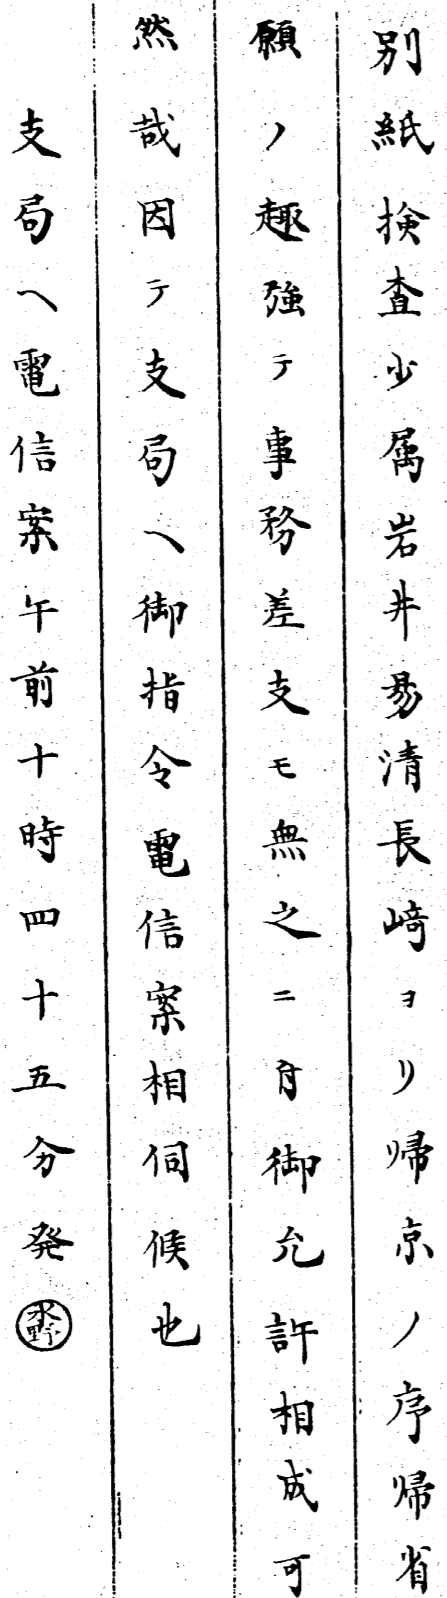 別紙検査少属岩井易清長﨑ヨリ帰京ノ序帰省
願ノ趣強テ事務差支モ無之ニ付御允許相成可
然哉因テ支局ヘ御指令電信案相伺候也
支局ヘ電信案午前十時四十五分発 水野